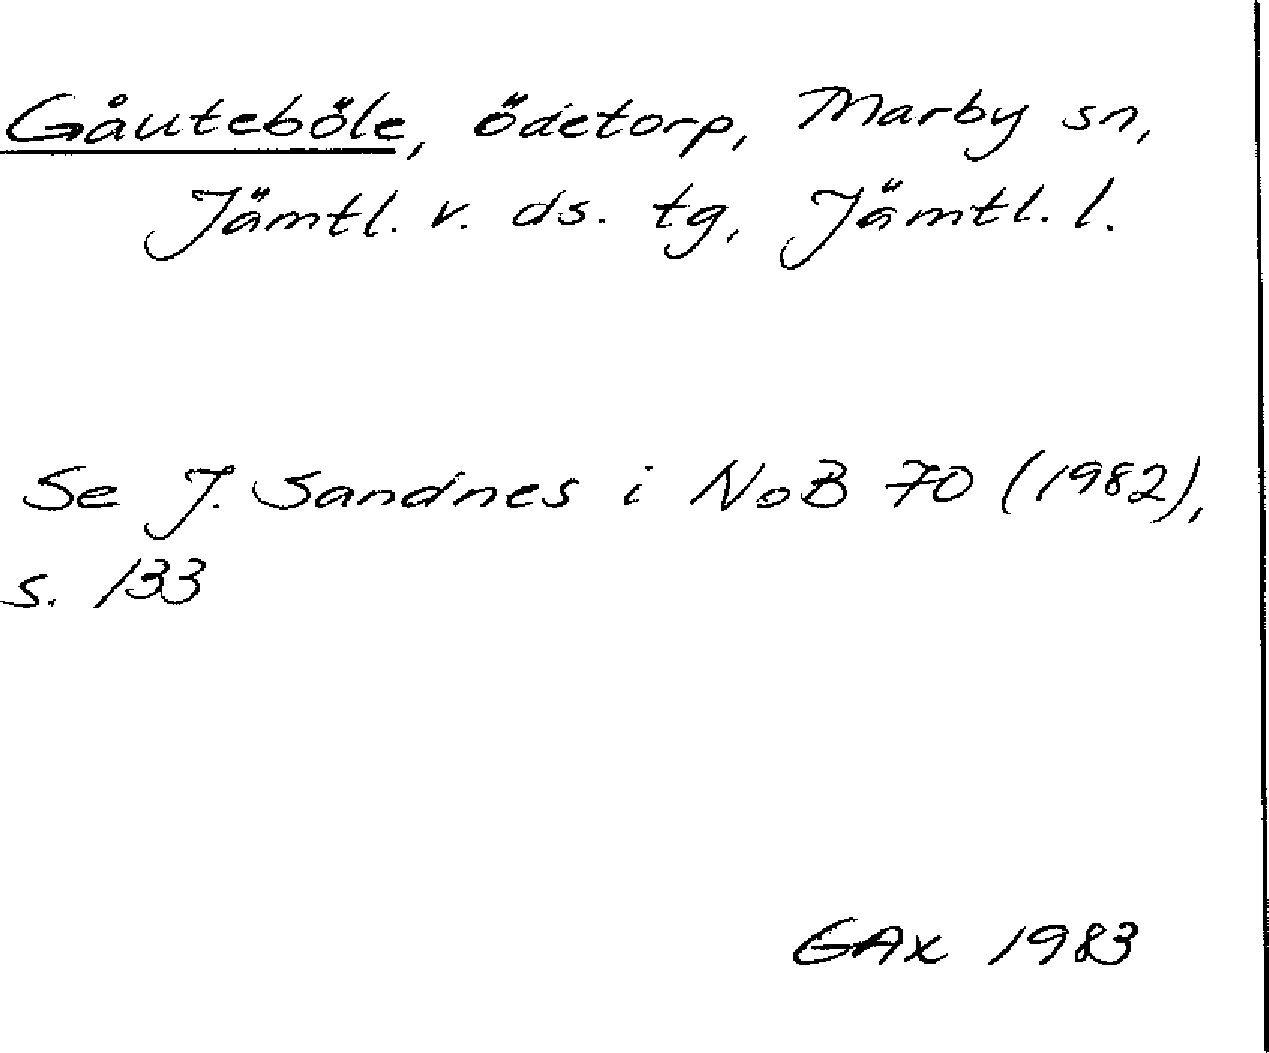 Gåuteböle, ödetorp, Marby sn,
Jämtl. v. ds. tg, Jämtl. l.
Se J. Sandnes i NoB 70 (1982),
s. 133
GAx 1983